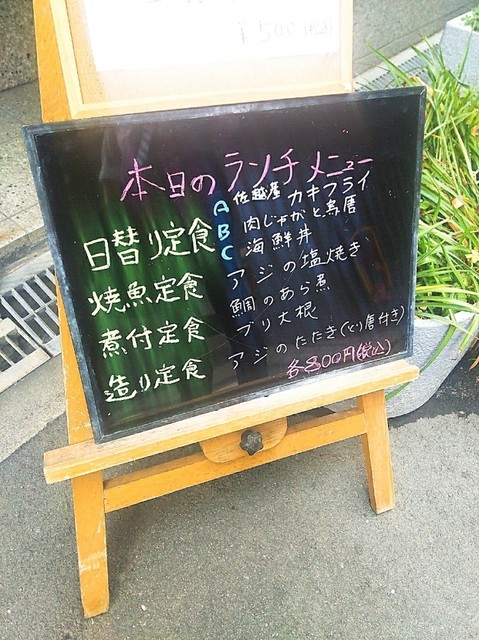 ¥500(税込)
本日のランチメニュー
日替り定食
A 佐越屋 カキフライ
B 肉じゃがと鳥唐
C 海鮮丼
焼魚定食 アジの塩焼き
煮付定食 鯛のあら煮
ブリ大根
造り定食 アジのたたき(とり唐付き)
各800円(税込)